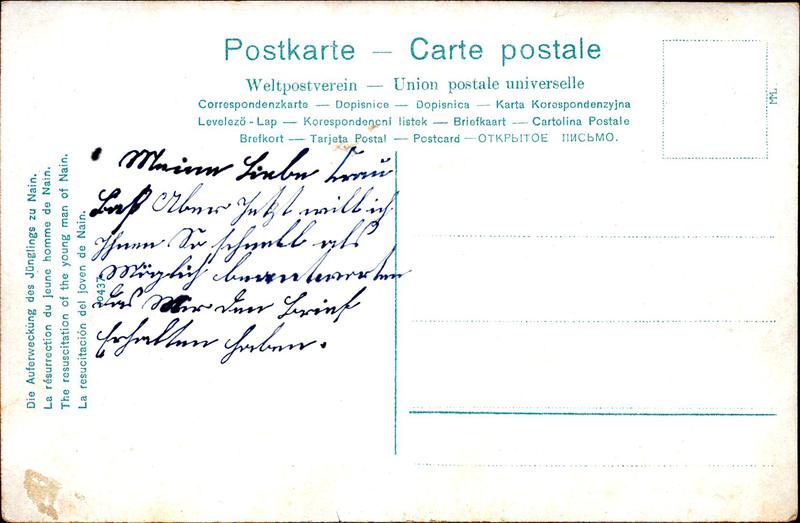 Postkarte — Carte postale
Weltpostverein — Union postale universelle
Correspondenzkarte — Dopisnice — Dopisnica — Karta Korespondenzyjna
Levelező-Lap — Korespondencni listek — Briefkaart — Cartolina Postale
Brefkort — Tarjeta Postal — Postcard — ОТКРЫТОЕ ПИСЬМО.
MM.
Die Auferweckung des Jünglings zu Nain.
La résurrection du jeune homme de Nain.
The resuscitation of the young man of Nain.
La resucitación del joven de Nain.
Meine Liebe Frau
Baß Aber Jetzt will ich
Ihnen So schnell als
Möglich beantworten
das Wir den Brief
Erhalten haben.